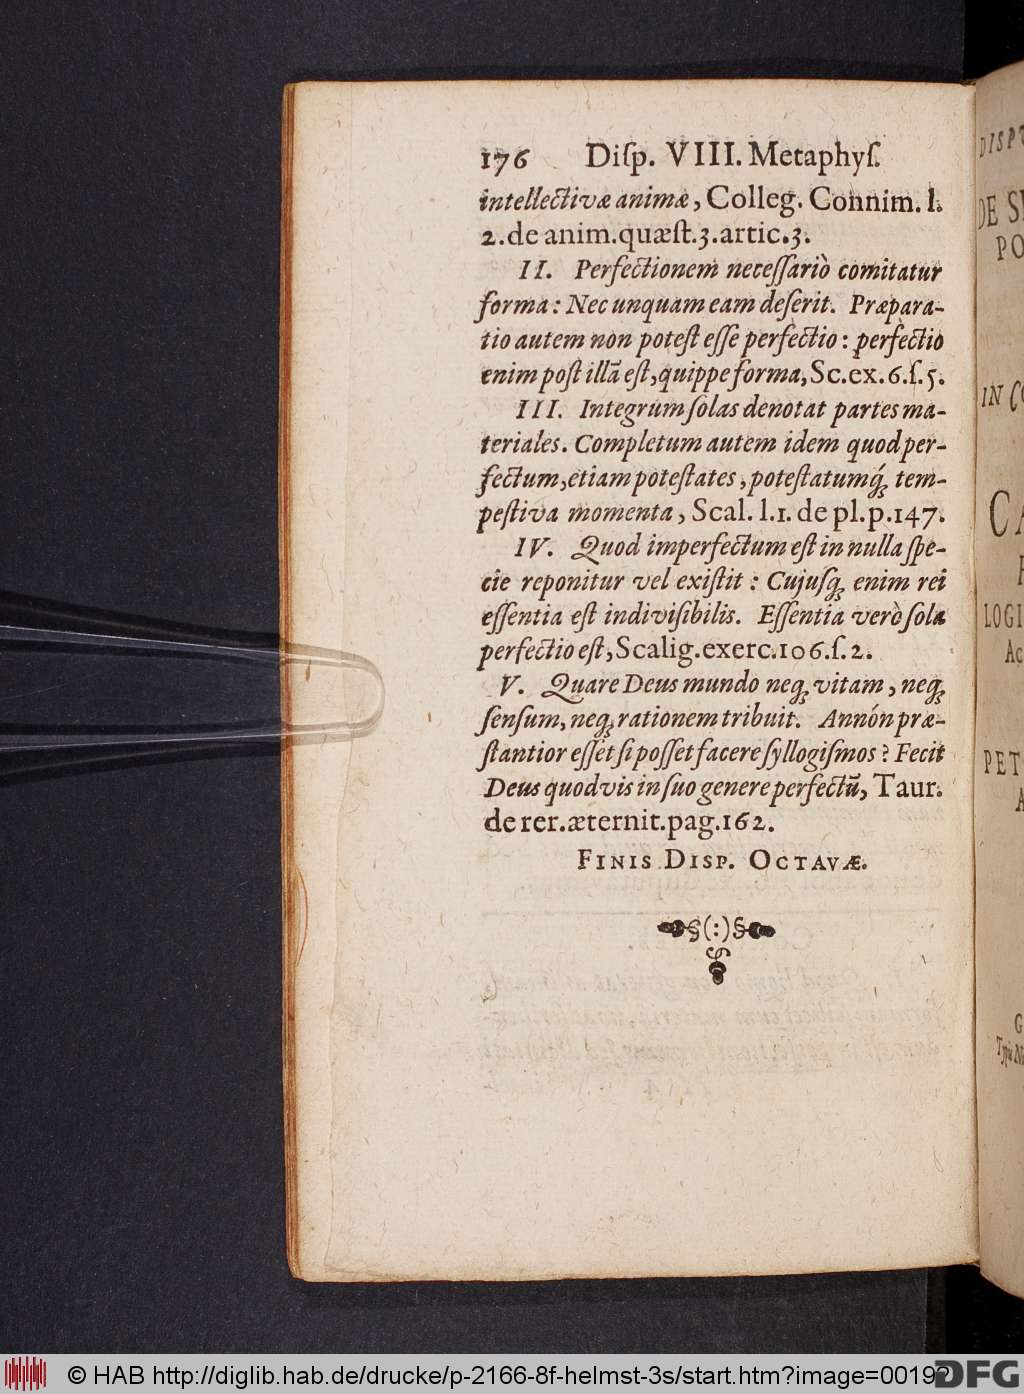 176 Diſp. VIII. Metaphyſ.
intellectivæ animæ, Colleg. Connim. l.
2. de anim. quæſt. 3. artic. 3.
II. Perfectionem neceſſariò comitatur
forma: Nec unquam eam deſerit. Præpara-
tio autem non poteſt eſſe perfectio: perfectio
enim poſt illã eſt, quippe forma, Sc. ex. 6. ſ. 5.
III. Integrum ſolas denotat partes ma-
teriales. Completum autem idem quod per-
fectum, etiam poteſtates, poteſtatumq́; tem-
peſtiva momenta, Scal. l. 1. de pl. p. 147.
IV. Quod imperfectum eſt in nulla ſpe-
cie reponitur vel exiſtit: Cujuſq; enim rei
eſſentia eſt indiviſibilis. Eſſentia verò ſola
perfectio eſt, Scalig. exerc. 106. ſ. 2.
V. Quare Deus mundo neq; vitam, neq;
ſenſum, neq; rationem tribuit. Annón præ-
ſtantior eſſet ſi poſſet facere ſyllogiſmos? Fecit
Deus quodvis in ſuo genere perfectũ, Taur.
de rer. æternit. pag. 162.
FINIS DISP. OCTAVÆ.
§(:)§
DE
PO
IN
CA
LOGI
Ac
PET
A
G
© HAB http://diglib.hab.de/drucke/p-2166-8f-helmst-3s/start.htm?image=00192
DFG